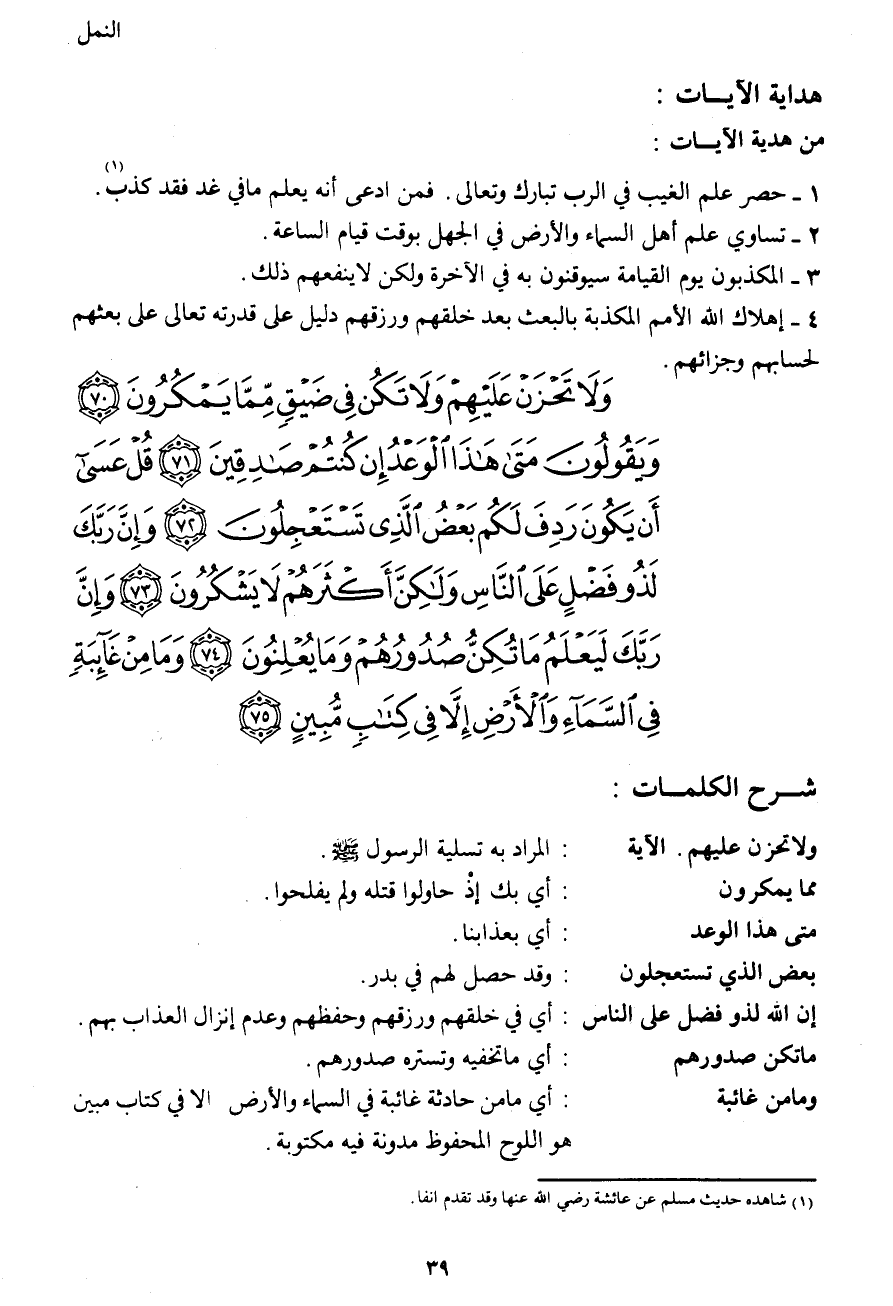 النمل
هداية الآيـــات :
من هدية الآيـــات :
١ - حصر علم الغيب في الرب تبارك وتعالى . فمن ادعى أنه يعلم مافي غد فقد كذب(١).
٢ - تساوي علم أهل السماء والأرض في الجهل بوقت قيام الساعة .
٣ - المكذبون يوم القيامة سيوقنون به في الآخرة ولكن لاينفعهم ذلك .
٤ - إهلاك الله الأمم المكذبة بالبعث بعد خلقهم ورزقهم دليل على قدرته تعالى على بعثهم
لحسابهم وجزائهم .
وَلَا تَحْزَنْ عَلَيْهِمْ وَلَا تَكُن فِى ضَيْقٍ مِّمَّا يَمْكُرُونَ ﴿٧٠﴾
وَيَقُولُونَ مَتَىٰ هَـٰذَا ٱلْوَعْدُ إِن كُنتُمْ صَـٰدِقِينَ ﴿٧١﴾ قُلْ عَسَىٰٓ
أَن يَكُونَ رَدِفَ لَكُم بَعْضُ ٱلَّذِى تَسْتَعْجِلُونَ ﴿٧٢﴾ وَإِنَّ رَبَّكَ
لَذُو فَضْلٍ عَلَى ٱلنَّاسِ وَلَـٰكِنَّ أَكْثَرَهُمْ لَا يَشْكُرُونَ ﴿٧٣﴾ وَإِنَّ
رَبَّكَ لَيَعْلَمُ مَا تُكِنُّ صُدُورُهُمْ وَمَا يُعْلِنُونَ ﴿٧٤﴾ وَمَا مِنْ غَآئِبَةٍ
فِى ٱلسَّمَآءِ وَٱلْأَرْضِ إِلَّا فِى كِتَـٰبٍ مُّبِينٍ ﴿٧٥﴾
شـــرح الكلمـــات :
ولاتحزن عليهم . الآية : المراد به تسلية الرسول ﷺ .
مما يمكرون : أي بك إذْ حاولوا قتله ولم يفلحوا .
متى هذا الوعد : أي بعذابنا .
بعض الذي تستعجلون : وقد حصل لهم في بدر .
إن الله لذو فضل على الناس : أي في خلقهم ورزقهم وحفظهم وعدم إنزال العذاب بهم .
ماتكن صدورهم : أي ماتخفيه وتستره صدورهم .
ومامن غائبة : أي مامن حادثة غائبة في السماء والأرض الا في كتاب مبين
هو اللوح المحفوظ مدونة فيه مكتوبة .
(١) شاهده حديث مسلم عن عائشة رضي الله عنها وقد تقدم انفا .
٣٩